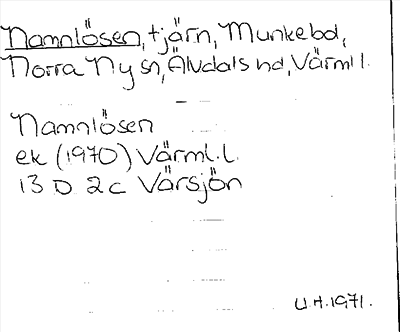 Namnlösen, tjärn, Munkebol,
Norra Ny sn, Älvdals hd, Värml l.
Namnlösen
ek (1970) Värml. l.
13 D 2c Värsjön
U.H. 1971.